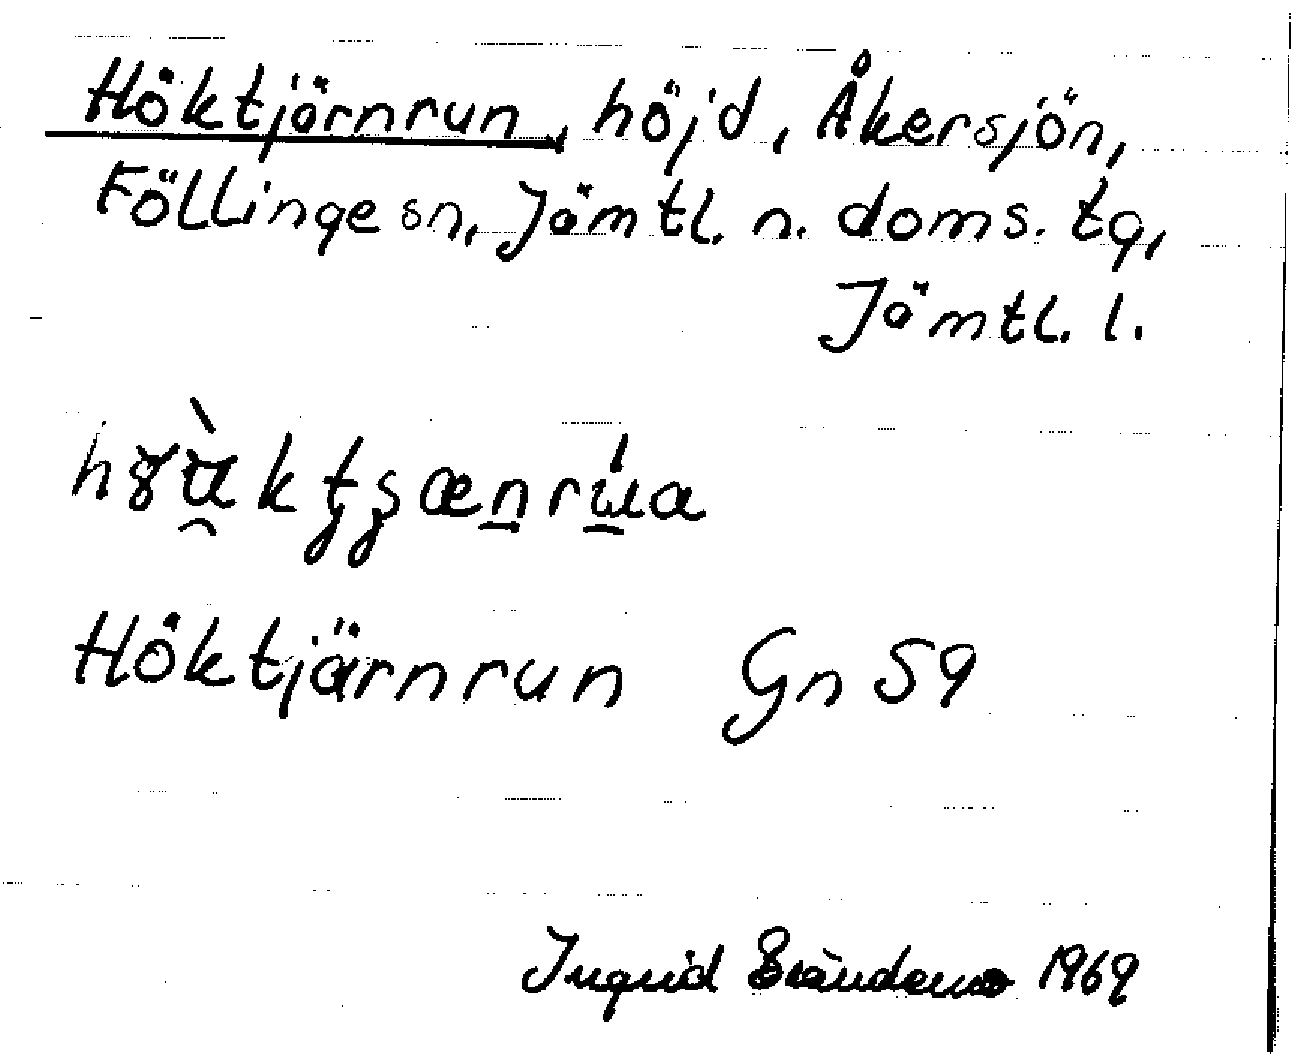 Höktjärnrun, höjd, Åkersjön,
Föllinge sn, Jämtl. n. doms. tg,
Jämtl. l.
Höktjärnrun Gn 59
Ingrid 1969